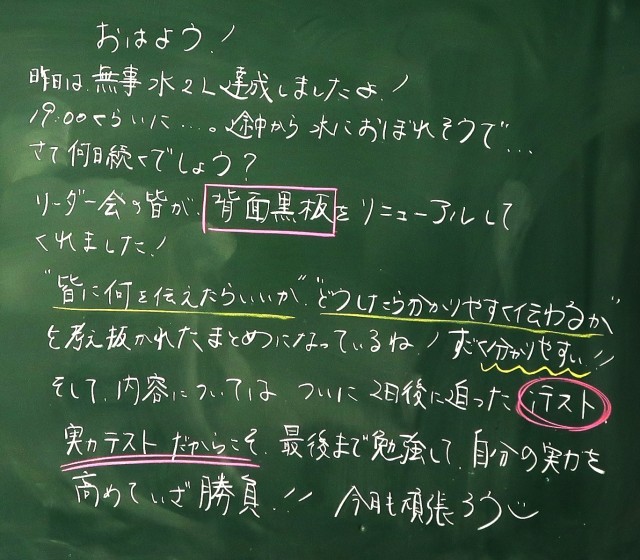 おはよう!
昨日は、無事水2L達成しましたよ!
19:00くらいに…。途中から水におぼれそうで…
さて何日続くでしょう?
リーダー会の皆が、背面黒板をリニューアルして
くれました!
"皆に何を伝えたらいいか""どうしたら分かりやすく伝わるか"
を考え抜かれたまとめになっているね!すごく分かりやすい!!
そして、内容については、ついに2日後に迫った テスト
実力テストだからこそ、最後まで勉強して、自分の実力を
高めていざ勝負!!! 今日も頑張ろう